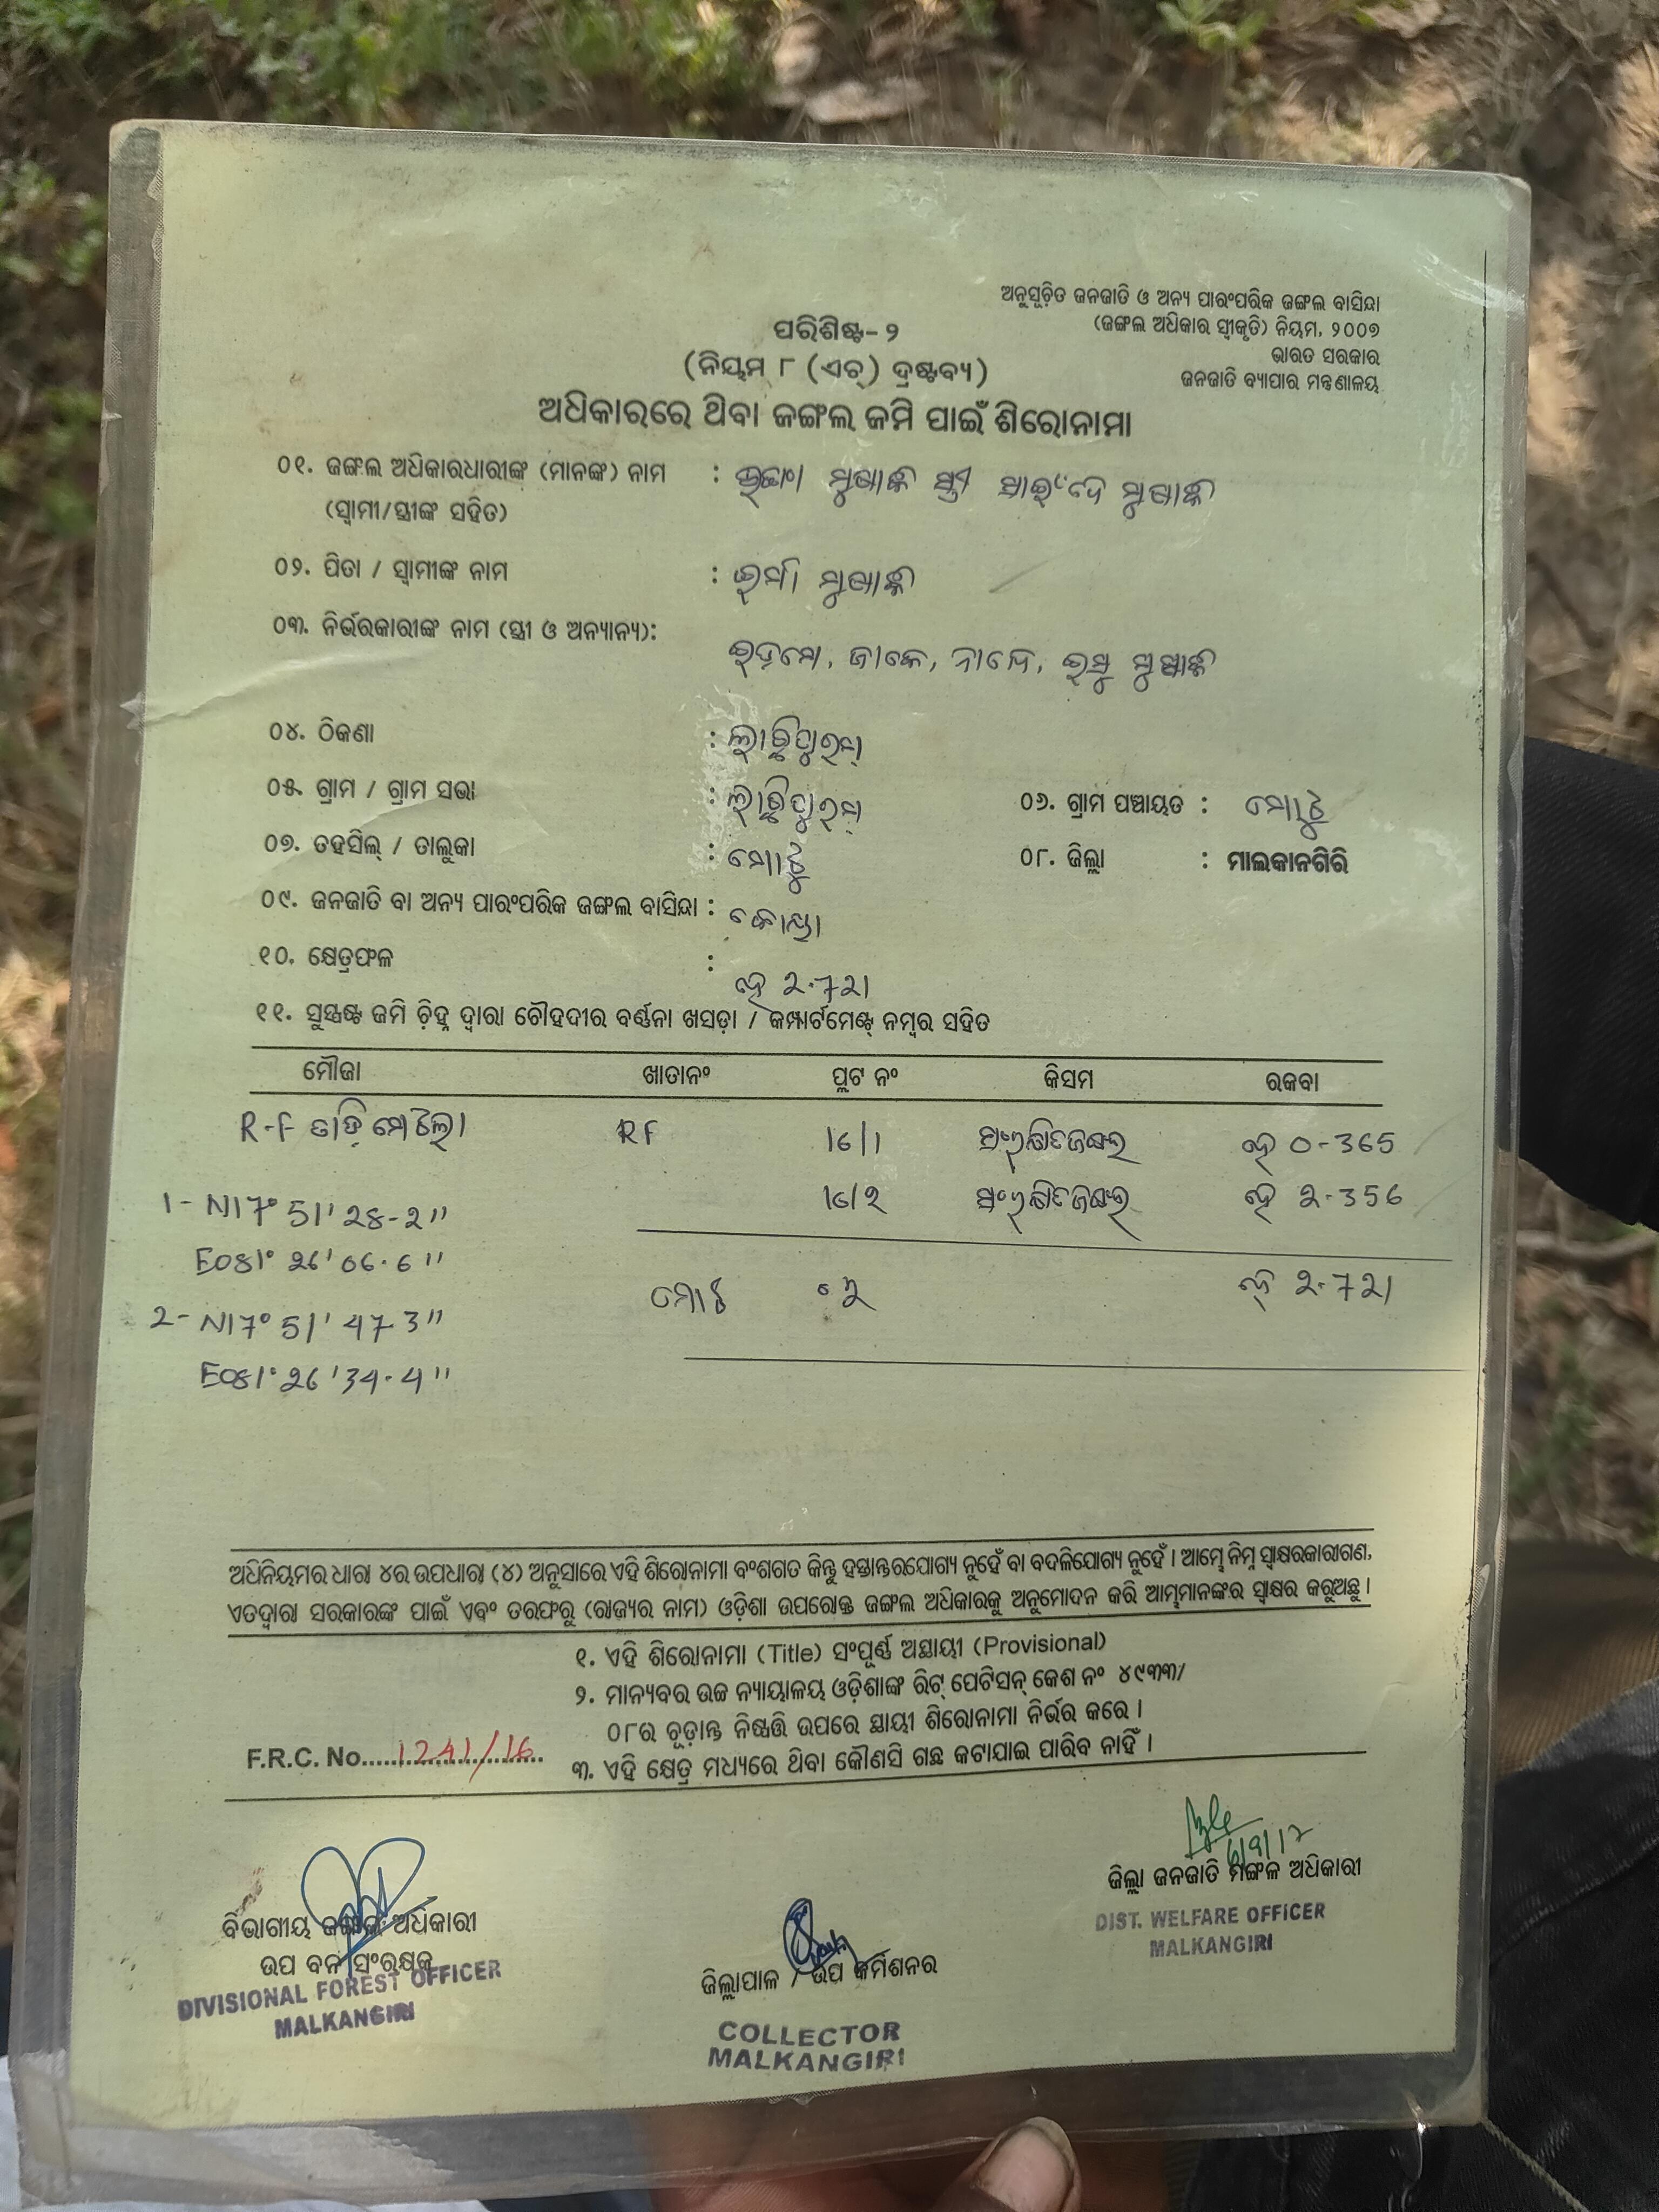 ଅନୁସୂଚିତ ଜନଜାତି ଓ ଅନ୍ୟ ପାରଂପରିକ ଜଙ୍ଗଲ ବାସିନ୍ଦା
(ଜଙ୍ଗଲ ଅଧିକାର ସ୍ୱୀକୃତି) ନିୟମ, ୨୦୦୭
ଭାରତ ସରକାର
ଜନଜାତି ବ୍ୟାପାର ମନ୍ତ୍ରଣାଳୟ
ପରିଶିଷ୍ଟ-୨
(ନିୟମ ୮ (ଏଚ୍) ଦ୍ରଷ୍ଟବ୍ୟ)
ଅଧିକାରରେ ଥିବା ଜଙ୍ଗଲ ଜମି ପାଇଁ ଶିରୋନାମା
୦୧. ଜଙ୍ଗଲ ଅଧିକାରଧାରୀଙ୍କ (ମାନଙ୍କ) ନାମ :
(ସ୍ୱାମୀ/ସ୍ତ୍ରୀଙ୍କ ସହିତ)
୦୨. ପିତା / ସ୍ୱାମୀଙ୍କ ନାମ :
୦୩. ନିର୍ଭରକାରୀଙ୍କ ନାମ (ସ୍ତ୍ରୀ ଓ ଅନ୍ୟାନ୍ୟ):
୦୪. ଠିକଣା :
୦୫. ଗ୍ରାମ / ଗ୍ରାମ ସଭା : ୦୬. ଗ୍ରାମ ପଞ୍ଚାୟତ : ମୋଟୁ
୦୭. ତହସିଲ୍ / ତାଲୁକା : ମୋଟୁ ୦୮. ଜିଲ୍ଲା : ମାଲକାନଗିରି
୦୯. ଜନଜାତି ବା ଅନ୍ୟ ପାରଂପରିକ ଜଙ୍ଗଲ ବାସିନ୍ଦା : କୋୟା
୧୦. କ୍ଷେତ୍ରଫଳ : ହେ 2.721
୧୧. ସୁସ୍ପଷ୍ଟ ଜମି ଚିହ୍ନ ଦ୍ୱାରା ଚୌହଦୀର ବର୍ଣ୍ଣନା ଖସଡ଼ା / କମ୍ପାର୍ଟମେଣ୍ଟ୍ ନମ୍ବର ସହିତ
ମୌଜା ଖାତାନଂ ପ୍ଲଟ ନଂ କିସମ ରକବା
R-F RF 16/1 ସଂରକ୍ଷିତଜଙ୍ଗଲ ହେ 0-365
1- N17° 51' 28-2" 16/2 ସଂରକ୍ଷିତଜଙ୍ଗଲ ହେ 2-356
E081° 26' 06.6"
ମୋଟ ହେ 2.721
2- N17° 51' 47-3"
E081° 26' 34.4"
ଅଧିନିୟମର ଧାରା ୪ର ଉପଧାରା (୪) ଅନୁସାରେ ଏହି ଶିରୋନାମା ବଂଶଗତ କିନ୍ତୁ ହସ୍ତାନ୍ତରଯୋଗ୍ୟ ନୁହେଁ ବା ବଦଳିଯୋଗ୍ୟ ନୁହେଁ । ଆମ୍ଭେ ନିମ୍ନ ସ୍ୱାକ୍ଷରକାରୀଗଣ,
ଏତଦ୍ୱାରା ସରକାରଙ୍କ ପାଇଁ ଏବଂ ତରଫରୁ (ରାଜ୍ୟର ନାମ) ଓଡ଼ିଶା ଉପରୋକ୍ତ ଜଙ୍ଗଲ ଅଧିକାରକୁ ଅନୁମୋଦନ କରି ଆମ୍ଭମାନଙ୍କର ସ୍ୱାକ୍ଷର କରୁଅଛୁ ।
୧. ଏହି ଶିରୋନାମା (Title) ସଂପୂର୍ଣ୍ଣ ଅସ୍ଥାୟୀ (Provisional)
୨. ମାନ୍ୟବର ଉଚ୍ଚ ନ୍ୟାୟାଳୟ ଓଡ଼ିଶାଙ୍କ ରିଟ୍ ପେଟିସନ୍ କେଶ ନଂ ୪୯୩୩/
୦୮ର ଚୂଡ଼ାନ୍ତ ନିଷ୍ପତ୍ତି ଉପରେ ସ୍ଥାୟୀ ଶିରୋନାମା ନିର୍ଭର କରେ ।
F.R.C. No. 1241/16
୩. ଏହି କ୍ଷେତ୍ର ମଧ୍ୟରେ ଥିବା କୌଣସି ଗଛ କଟାଯାଇ ପାରିବ ନାହିଁ ।
6/9/17
ଜିଲ୍ଲା ଜନଜାତି ମଙ୍ଗଳ ଅଧିକାରୀ
DIST. WELFARE OFFICER
MALKANGIRI
ବିଭାଗୀୟ ଜଙ୍ଗଲ ଅଧିକାରୀ
ଉପ ବନ ସଂରକ୍ଷକ
DIVISIONAL FOREST OFFICER
MALKANGIRI
ଜିଲ୍ଲାପାଳ / ଉପ କମିଶନର
COLLECTOR
MALKANGIRI